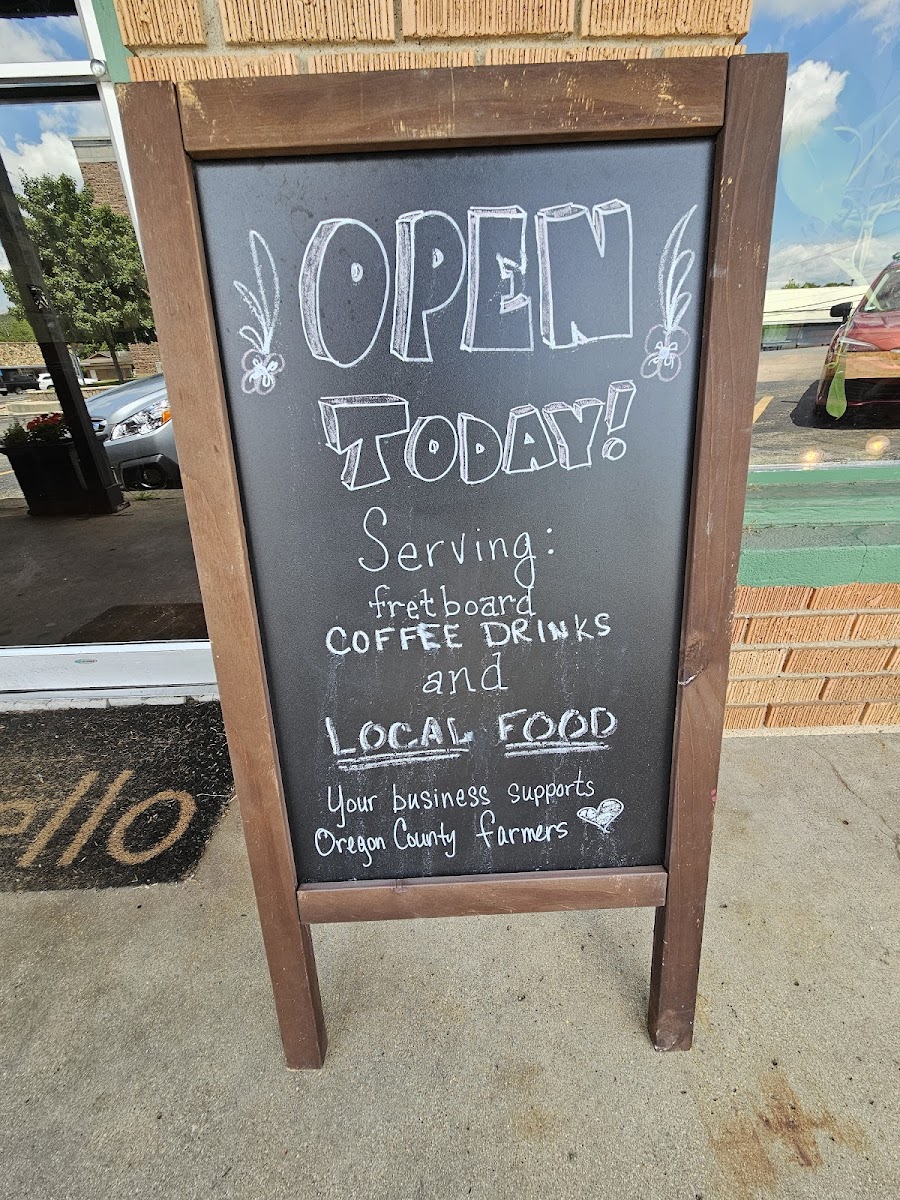 OPEN
TODAY!
Serving:
fretboard
COFFEE DRINKS
and
LOCAL FOOD
Your business supports
Oregon County farmers
ello